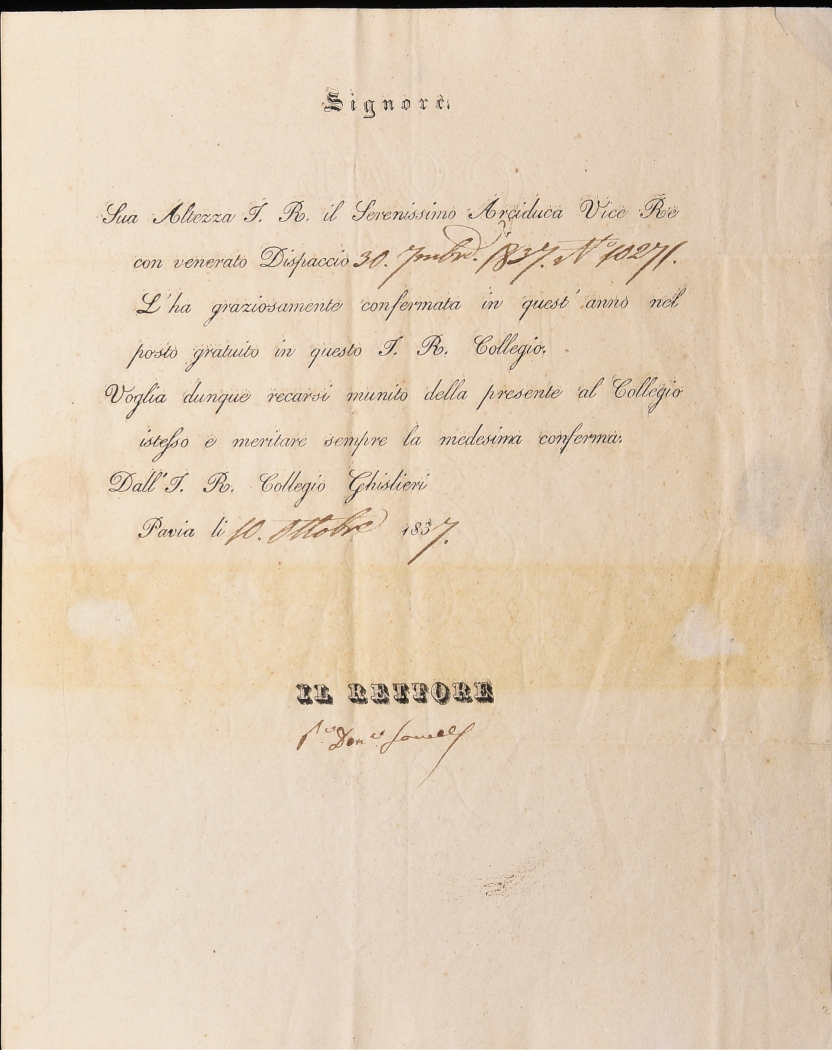 Signore.
Sua Altezza I. R. il Serenissimo Arciduca Vice Re
con venerato Dispaccio 30. 7mbre. 1837. N.º 10271.
L'ha graziosamente confermata in quest' anno nel
posto gratuito in questo I. R. Collegio.
Voglia dunque recarsi munito della presente al Collegio
istesso e meritare sempre la medesima conferma.
Dall' I. R. Collegio Ghislieri
Pavia li 10. Ottobre 1837.
IL RETTORE